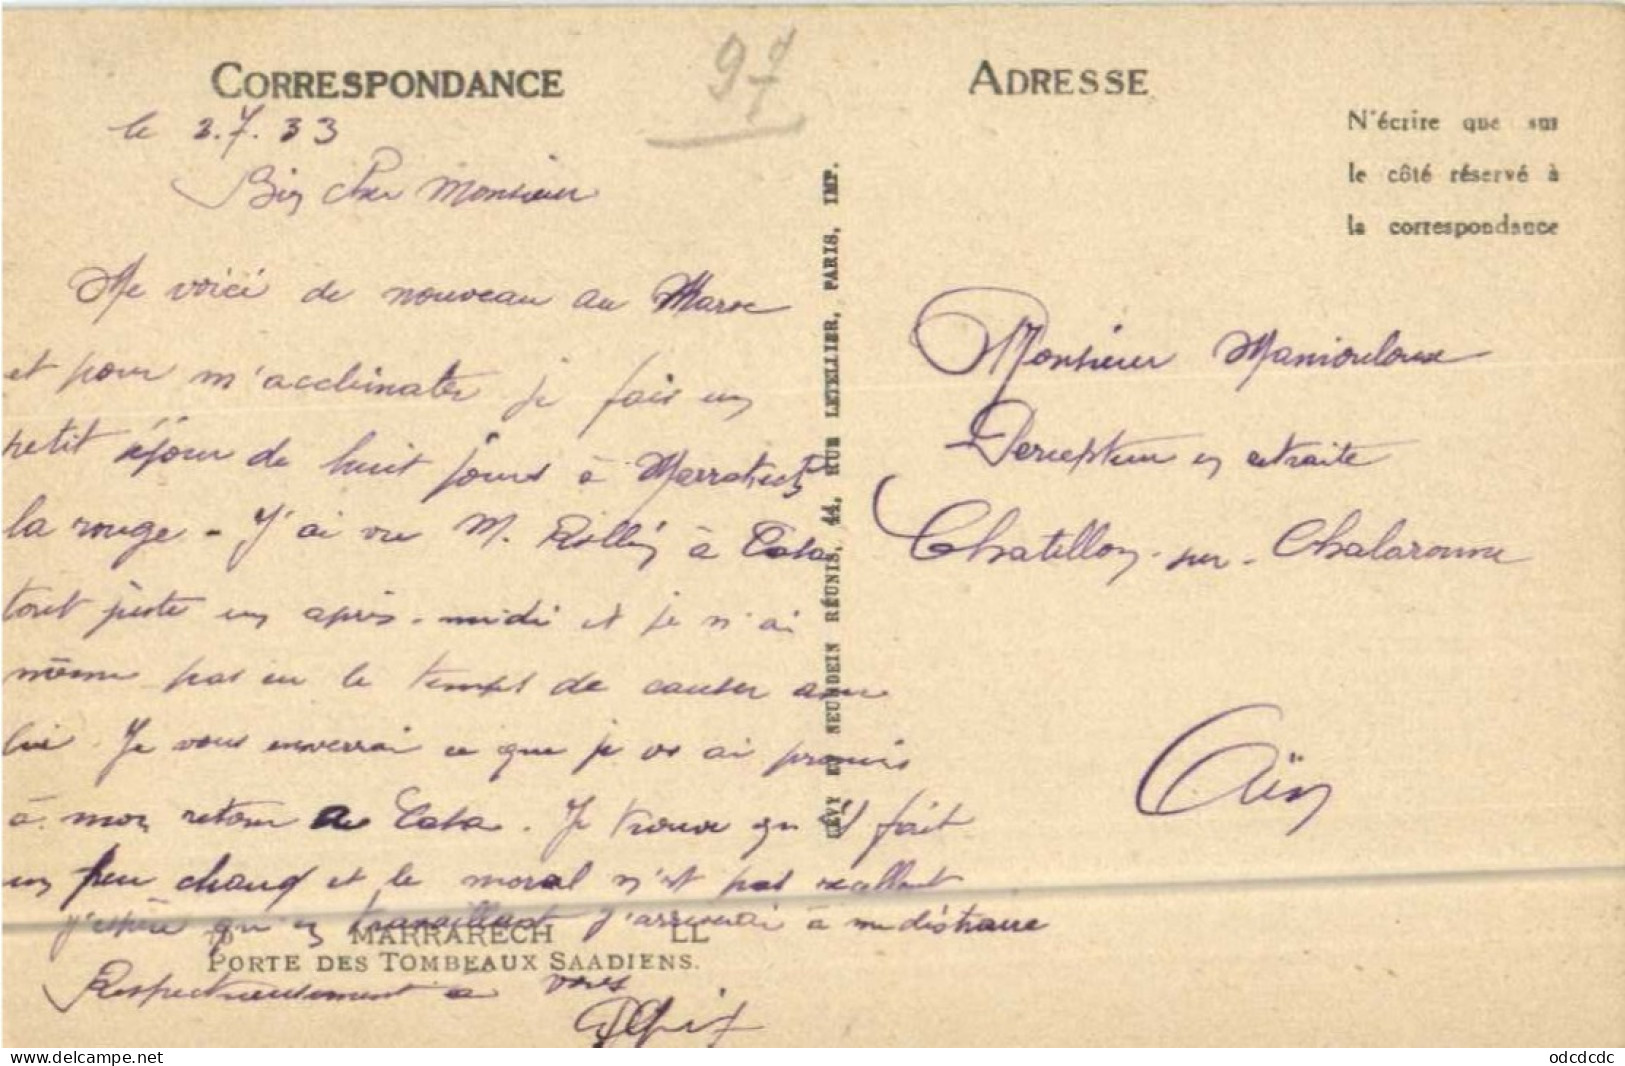 CORRESPONDANCE
97
ADRESSE
N'écrire que sur
le côté réservé à
la correspondance
le 2.7.33
Bien cher Monsieur
Me voici de nouveau au Maroc
et pour m'acclimater je fais un
petit séjour de huit jours à Marrakech
la rouge - J'ai vu M. à Casa
tout juste un après-midi et je n'ai
même pas eu le temps de causer avec
lui. Je vous enverrai ce que je vs ai promis
à mon retour à Casa. Je trouve qu'il fait
un peu chaud et le moral n'est pas excellent
j'espère qu'en travaillant j'arriverai à me distraire
Respectueusement à vous
10 MARRAKECH LL
PORTE DES TOMBEAUX SAADIENS.
LÉVY ET NEURDEIN RÉUNIS, 44, RUE LETELLIER, PARIS, IMP.
Monsieur Maniouloux
Percepteur en retraite
Chatillon-sur-Chalaronne
Ain
www.delcampe.net
odcdcdc